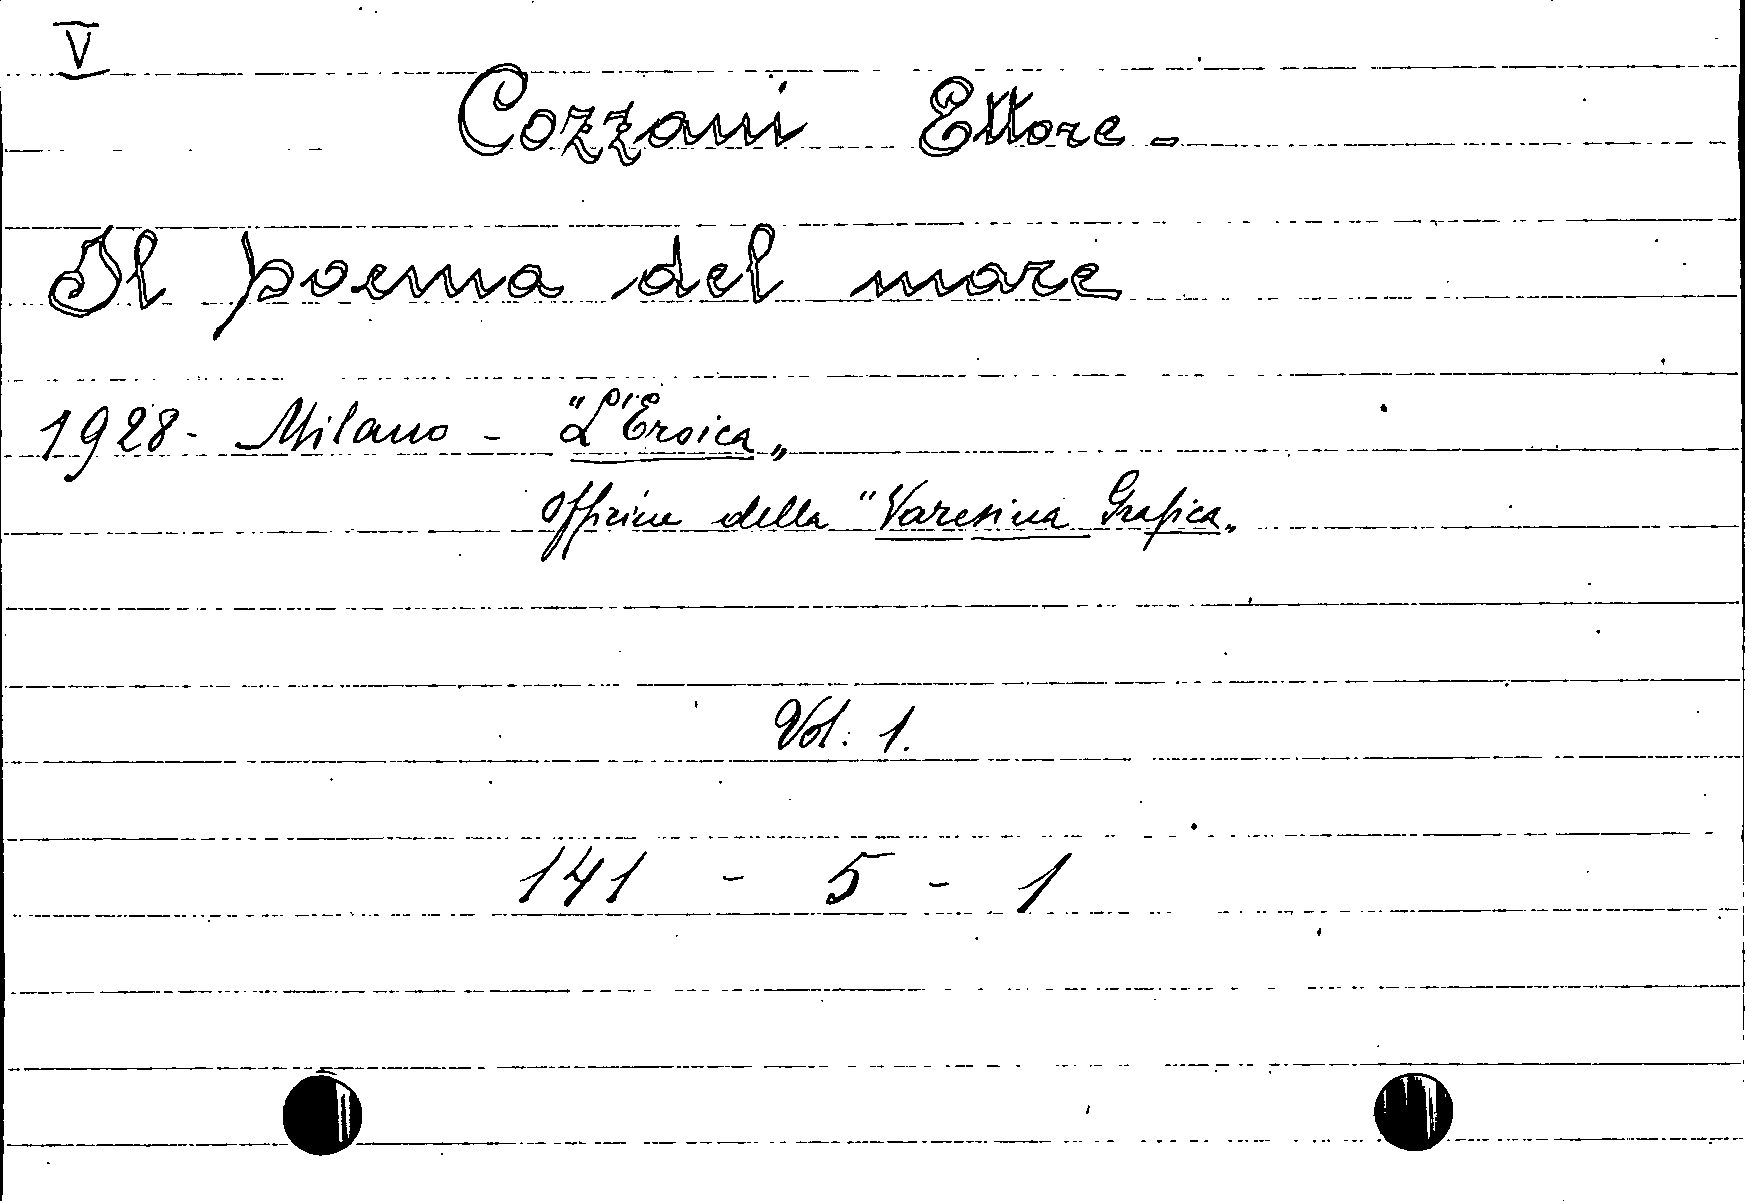 V
Cozzani Ettore -
Il poema del mare
1928 - Milano - "L'Eroica„
Officine della "Varesina Grafica„
Vol. 1.
141 - 5 - 1